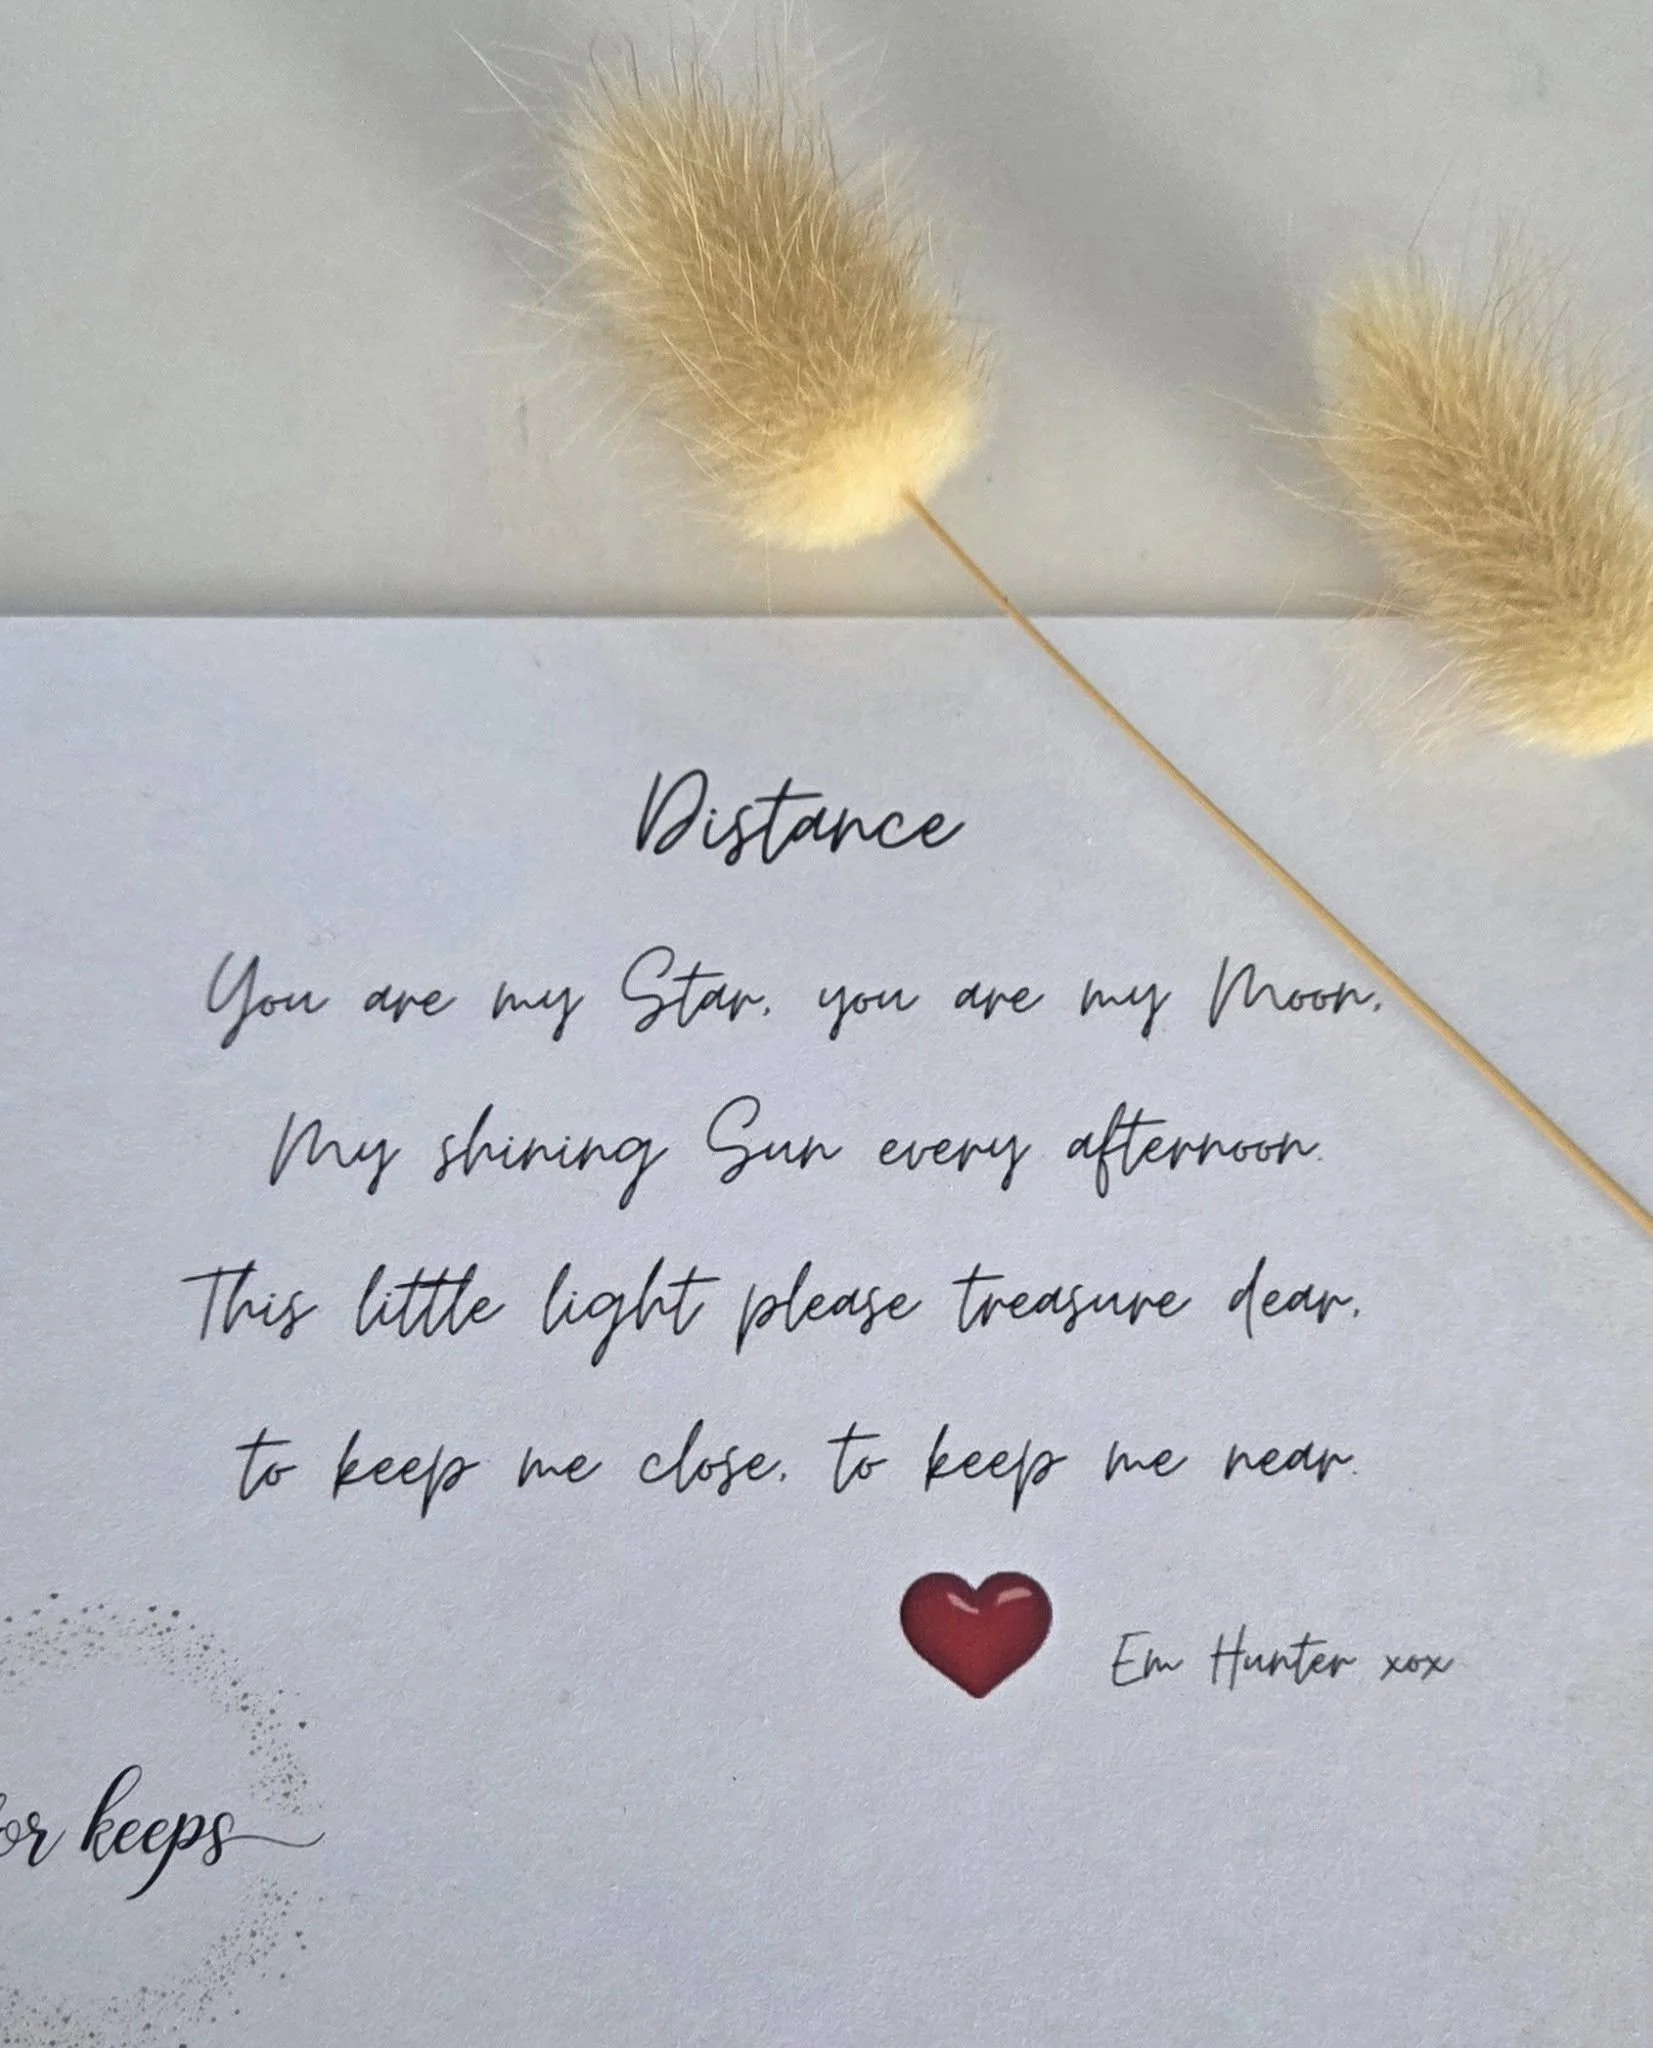 Distance
You are my Star, you are my Moon,
My shining Sun every afternoon.
This little light please treasure dear,
to keep me close, to keep me near.
Em Hunter xox
keeps